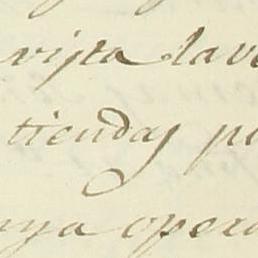 vista la ve
tiendas p
ya opera